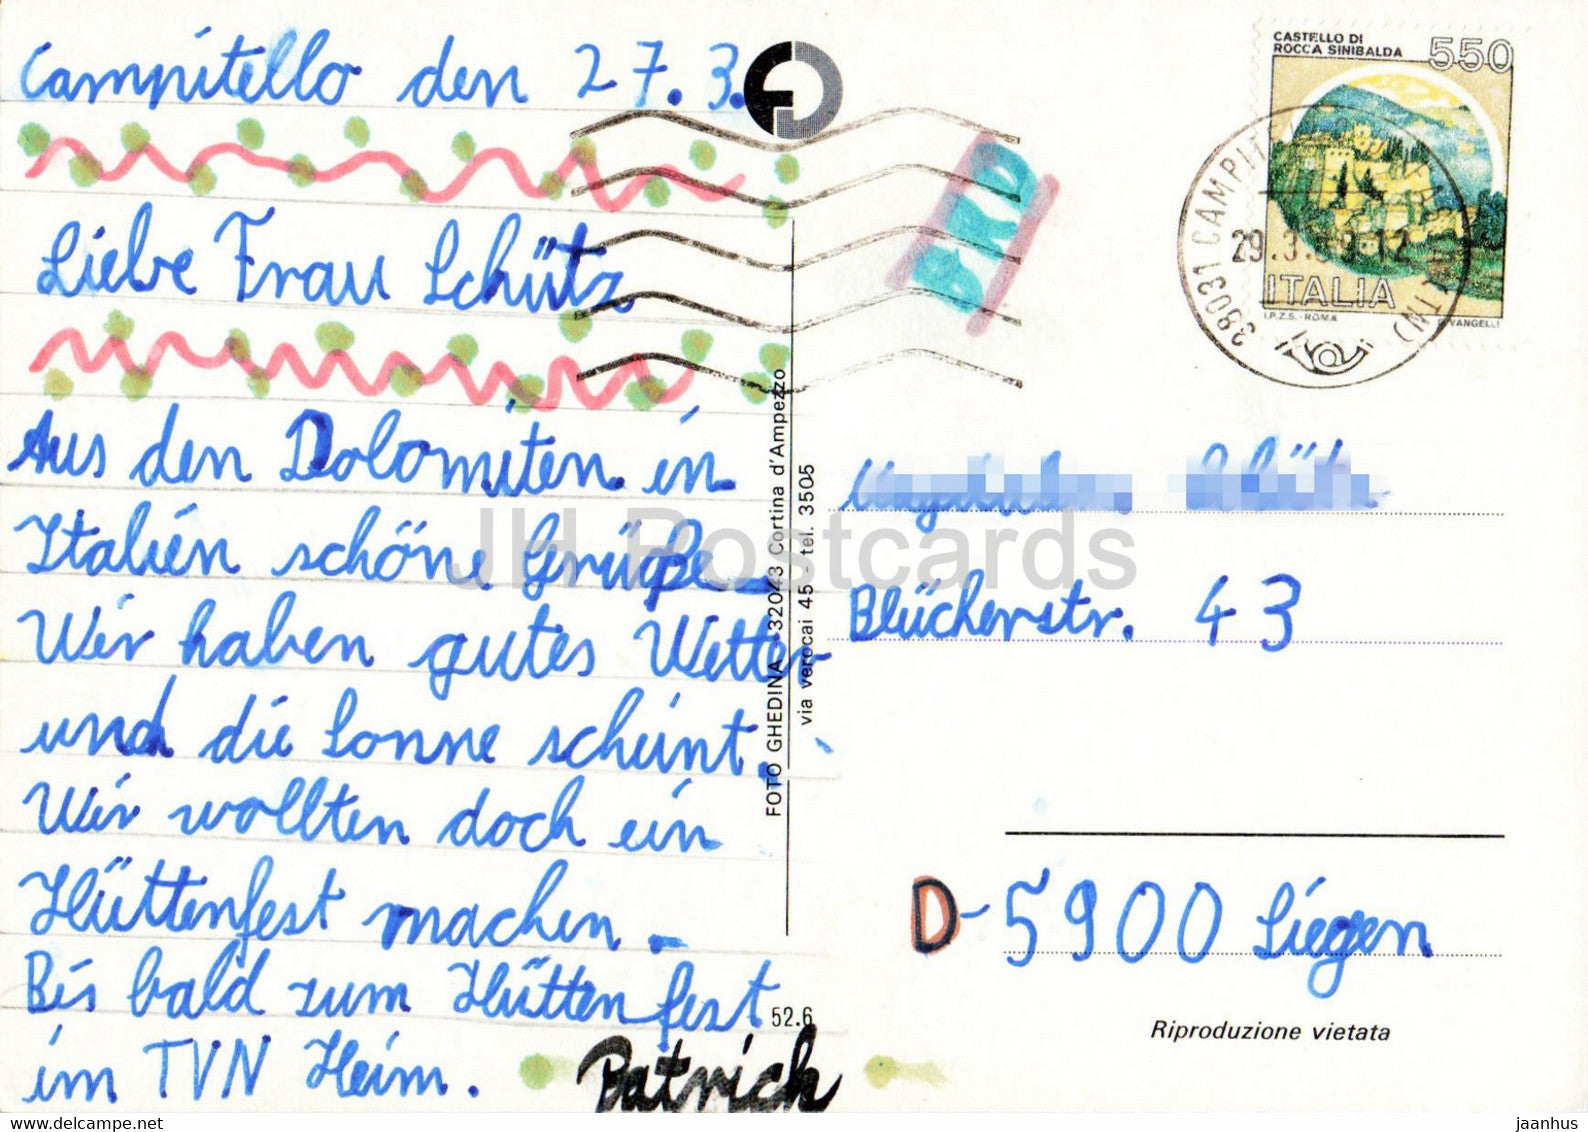 Campitello den 27.3.
Liebe Frau Schütz
Aus den Dolomiten in
Italien schöne Grüße
Wir haben gutes Wetter
und die Sonne scheint.
Wir wollten doch ein
Hüttenfest machen.
Bis bald zum Hüttenfest
im TVN Heim. Patrich
52.6
FOTO GHEDINA 32043 Cortina d'Ampezzo
via verocai 45 - tel. 3505
CASTELLO DI
ROCCA SINIBALDA
550
ITALIA
I.P.Z.S. - ROMA
VANGELLI
38031 CAMPI
29.3.
12
(TN)
Blücherstr. 43
D-5900 Siegen
Riproduzione vietata
JH Postcards
delcampe.net
jaanhus